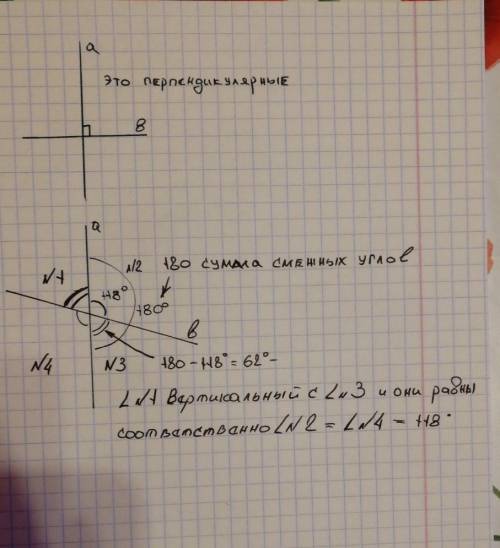 а
это перпендикулярные
в
а
№2 180 сумма смежных углов
№1
118°
180°
в
№4 №3 180 - 118° = 62° -
∠№1 вертикальный с ∠№3 и они равны
соответственно ∠№2 = ∠№4 - 118°